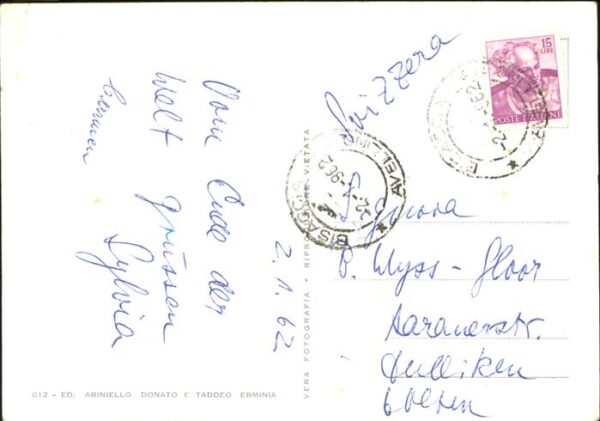 Vom Ende der
Welt grüssen
Sylvia
2.1.62
Svizzera
Signora
B. Wyss-Floor
Aarauerstr.
Dulliken
Olten
15
LIRE
POSTE ITALIANE
BISACCIA
AVELLINO
BISACCIA
VERA FOTOGRAFIA • RIPRODUZIONE VIETATA
012 - ED. ARINIELLO DONATO E TADDEO ERMINIA